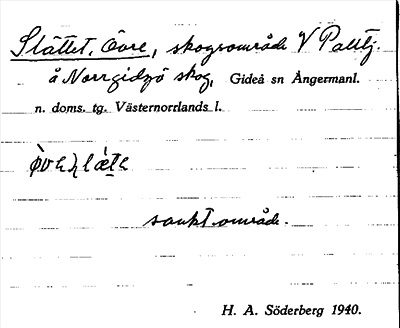 Slåttet, Övre, skogsområde V Palltj.
å Norrgideå skog, Gideå sn Ångermanl.
n. doms. tg. Västernorrlands l.
sankt område.
H. A. Söderberg 1940.